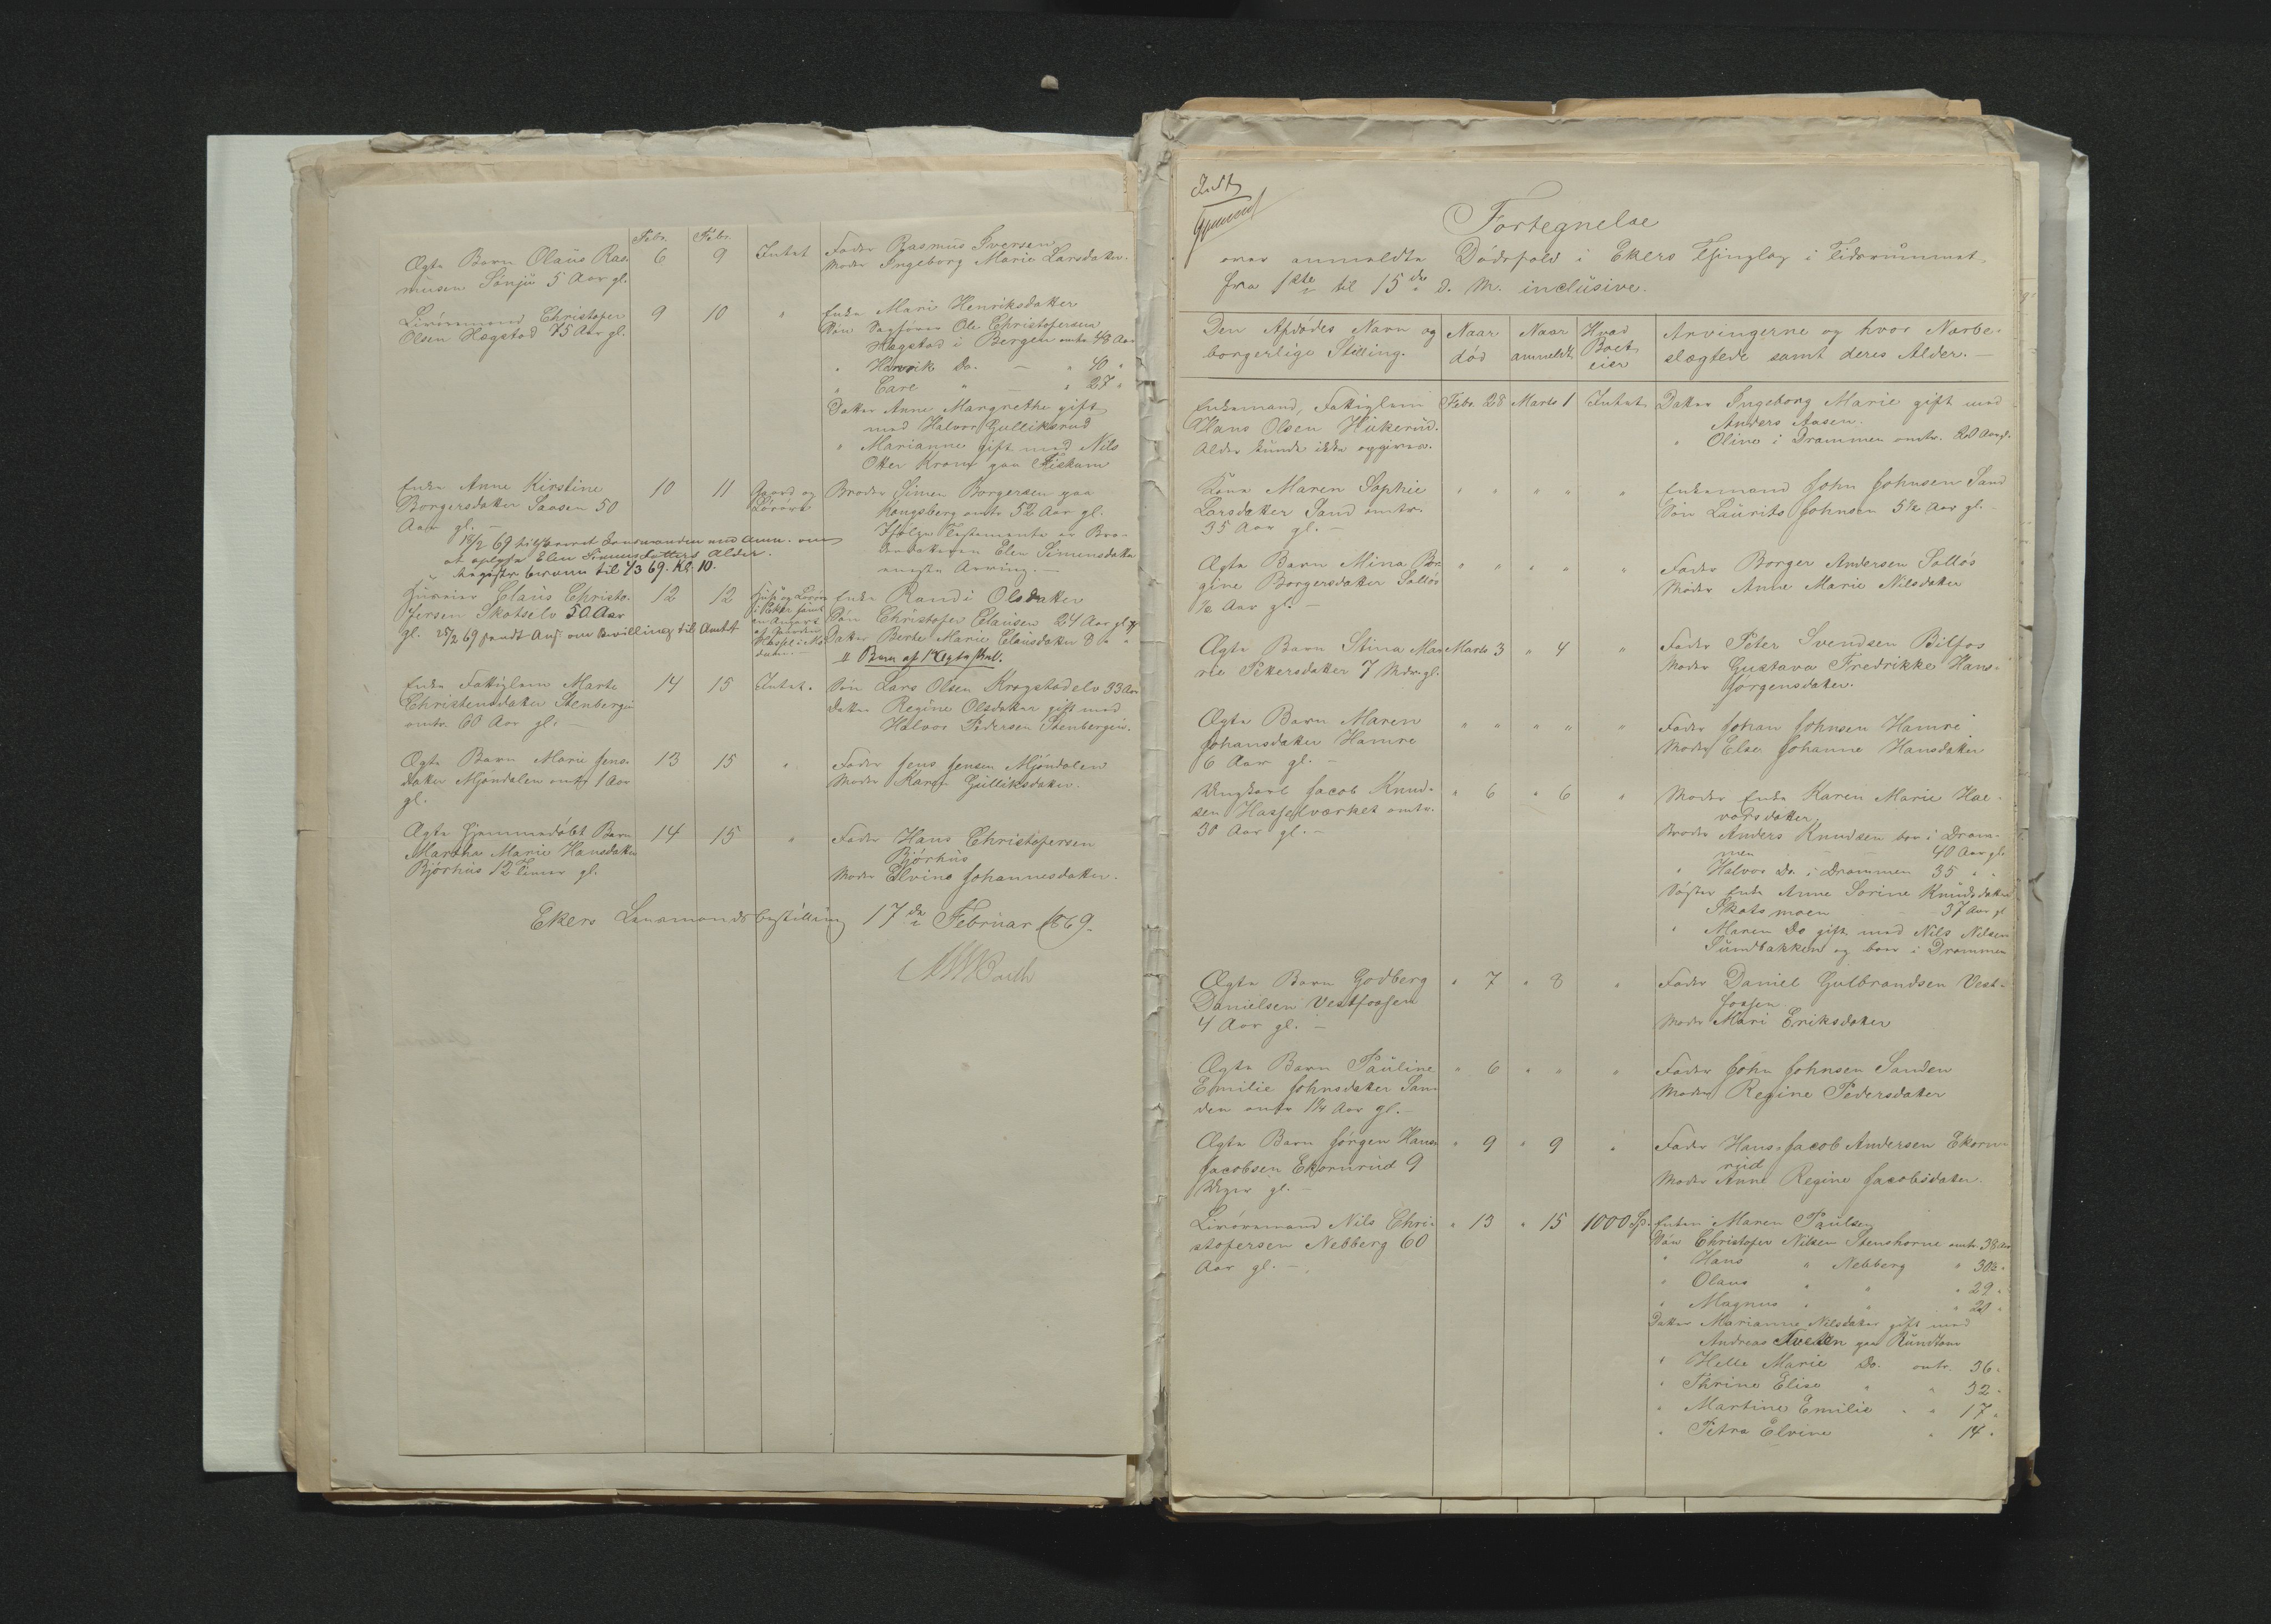 Febr. Febr.
Ægte Barn Olaus Ras 6 9 Intet Fader Rasmus Iversen
musen Sønju 5 Aar gl. Moder Ingeborg Marie Larsdatter.
Livøremand Christofer 9 10 " Enke Mari Henriksdatter
Olsen Hægstad 75 Aar gl. Søn Sagfører Ole Christofersen
Hægstad i Bergen omtr. 48 Aar
" Henrik Do. — " 40 "
" Care " — " 27 "
Datter Anne Margrethe gift
med Halvor Gulliksrud
" Marianne gift med Nils
Otter Krone paa Fiskum
Enke Anne Kirstine 10 11 Gaard og Broder Simen Borgersen paa
Borgersdatter Saasen 50 Løsøre Kongsberg omtr 52 Aar gl.
Aar gl. — Ifølge Testamente er Bro-
18/2 69 tilskrevet Lensmanden med Anm. om derdatteren Elen Simensdatter
at oplyse Elen Simensdatters Alder. eneste Arving. —
Registr. berammet til 1/3 69. Kl. 10.
Husmand Claus Christo- 12 12 Huse og Løsøre Enke Randi Olsdatter
fersen Skotselv 50 Aar i Eker samt Søn Christofer Clausen 24 Aar gl
gl. 25/2 69 sendt Ans. om Bevilling til Amtet Datter Berte Marie Clausdatter 8 " "
Børn af 1ste Ægteskab.
Enke Fattiglem Marte 14 15 Intet. Søn Lars Olsen Krogstadelv 33 Aar
Christensdatter Stenbergin Datter Regine Olsdatter gift med
omtr. 60 Aar gl. — Halvor Pedersen Stenbergin.
Ægte Barn Marie Jens- 13 15 " Fader Jens Jensen Mjøndalen
datter Mjøndalen omtr 1 Aar Moder Karen Gulliksdatter.
gl.
Ægte Hjemmedøbt Barn 14 15 " Fader Hans Christofersen
Martha Marie Hansdatter Bjørhus
Bjørhus 12 Timer gl. Moder Elvine Johannesdatter.
Ekers Lensmandsbestilling 17de Februar 1869.
Fortegnelse
over anmeldte Dødsfald i Ekers Thinglag i Tidsrummet
fra 1ste til 15de d. M. inclusive.
Den Afdødes Navn og Naar Naar Hvad Arvingerne og hvor Nærbe-
borgerlige Stilling. død anmeldt Boet slægtede samt deres Alder. —
eier
Enkemand, Fattiglem Febr. 28 Marts 1 Intet Datter Ingeborg Marie gift med
Hans Olsen Hukerud. Anders Aasen.
Alder kunde ikke opgives. " Oline i Drammen omtr. 20 Aar gl.
Kone Maren Sophie " " " " " Enkemand John Johnsen Sand
Larsdatter Sand omtr. Søn Laurits Johnsen 5½ Aar gl. —
35 Aar gl. —
Ægte Barn Mina Bor " " " " " Fader Borger Andersen Solløs
gine Borgersdatter Solløs Moder Anne Marie Nilsdatter
½ Aar gl. —
Ægte Barn Stina Ma- Marts 3 " 4 " Fader Peter Svendsen Bilfos
rie Petersdatter 7 Mdr. gl. Moder Gustava Fredrikke Hans-
Jørgensdatter.
Ægte Barn Maren " " " " " Fader Johan Johnsen Hamre
Johansdatter Hamre Moder Else Johanne Hansdatter
6 Aar gl. —
Ungkarl Jacob Knud- " 6 " 6 " Moder Enke Karen Marie Hal-
sen Hasselværket omtr. vorsdatter.
30 Aar gl. — Broder Anders Knudsen bor i Dram-
men 40 Aar gl.
" Halvor Do. i Drammen 35 " "
Søster Enke Anne Sorine Knudsdatter
Skotsmoen 37 Aar gl
" Maren Do gift med Nils Nilsen
Sundbakken og boer i Drammen
Ægte Barn Godberg " 7 " 8 " Fader Daniel Gulbrandsen Vest-
Danielsen Vestfossen fossen
4 Aar gl. — Moder Mari Eriksdatter
Ægte Barn Pauline " 6 " " " Fader John Johnsen Sanden
Emilie Johnsdatter San Moder Regine Pedersdatter
den omtr 1¼ Aar gl. —
Ægte Barn Jørgen Hans " 9 " 9 " Fader Hans Jacob Andersen Ekorn-
Jacobsen Ekornrud 9 rud
Uger gl. — Moder Anne Regine Jacobsdatter.
Livøremand Nils Chri- " 13 " 15 1000 Sp. Enken Maren Paulsen
stofersen Nebberg 60 Søn Christofer Nilsen Stenshorne omtr. 38 Aar
Aar gl. — " Hans " Nebberg " 30½ "
" Olaus " " " 29 "
" Magnus " " " 21 "
Datter Marianne Nilsdatter gift med
Andreas Tvetten paa Rundtom
" Helle Marie Do. omtr. 36 "
" Thrine Elise " " 32 "
" Martine Emilie " " 17 "
" Petra Elvine " 14 "